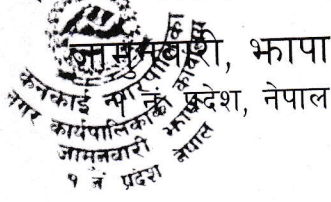 जामुनबारी, झापा
१ नं. प्रदेश, नेपाल
कनकाई नगरपालिका
नगर कार्यपालिकाको कार्यालय
जामनबारी झापा
१ नं प्रदेश नेपाल